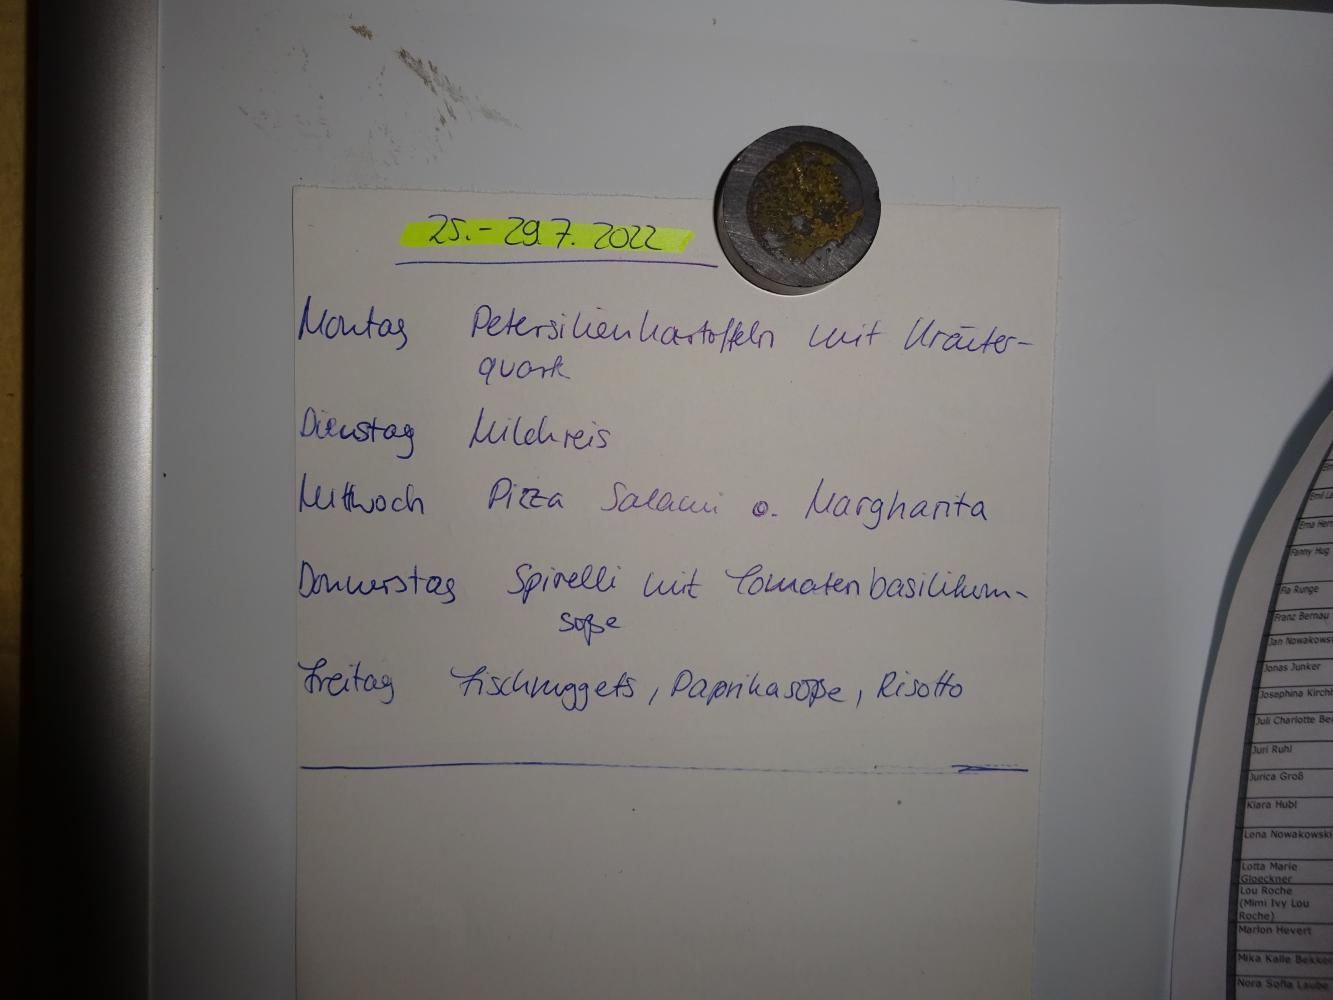 25.-29.7. 2022
Montag Petersilienkartoffeln mit Kräuter-
quark
Dienstag Milchreis
Mittwoch Pizza Salami o. Margharita
Donnerstag Spirelli mit Tomatenbasilikum-
soße
Freitag Fischnuggets, Paprikasoße, Risotto
Emil
Fanny Hug
Fia Runge
Franz Bernau
Jan Nowakows
Jonas Junker
Josephina Kirchh
Juli Charlotte Be
Juri Ruhl
Jurica Groß
Kiara Hubl
Lena Nowakowski
Lotta Marie
Gloeckner
Lou Roche
(Mimi Ivy Lou
Roche)
Marlon Hevert
Mika Kalle Bekke
Nora Sofia Laube